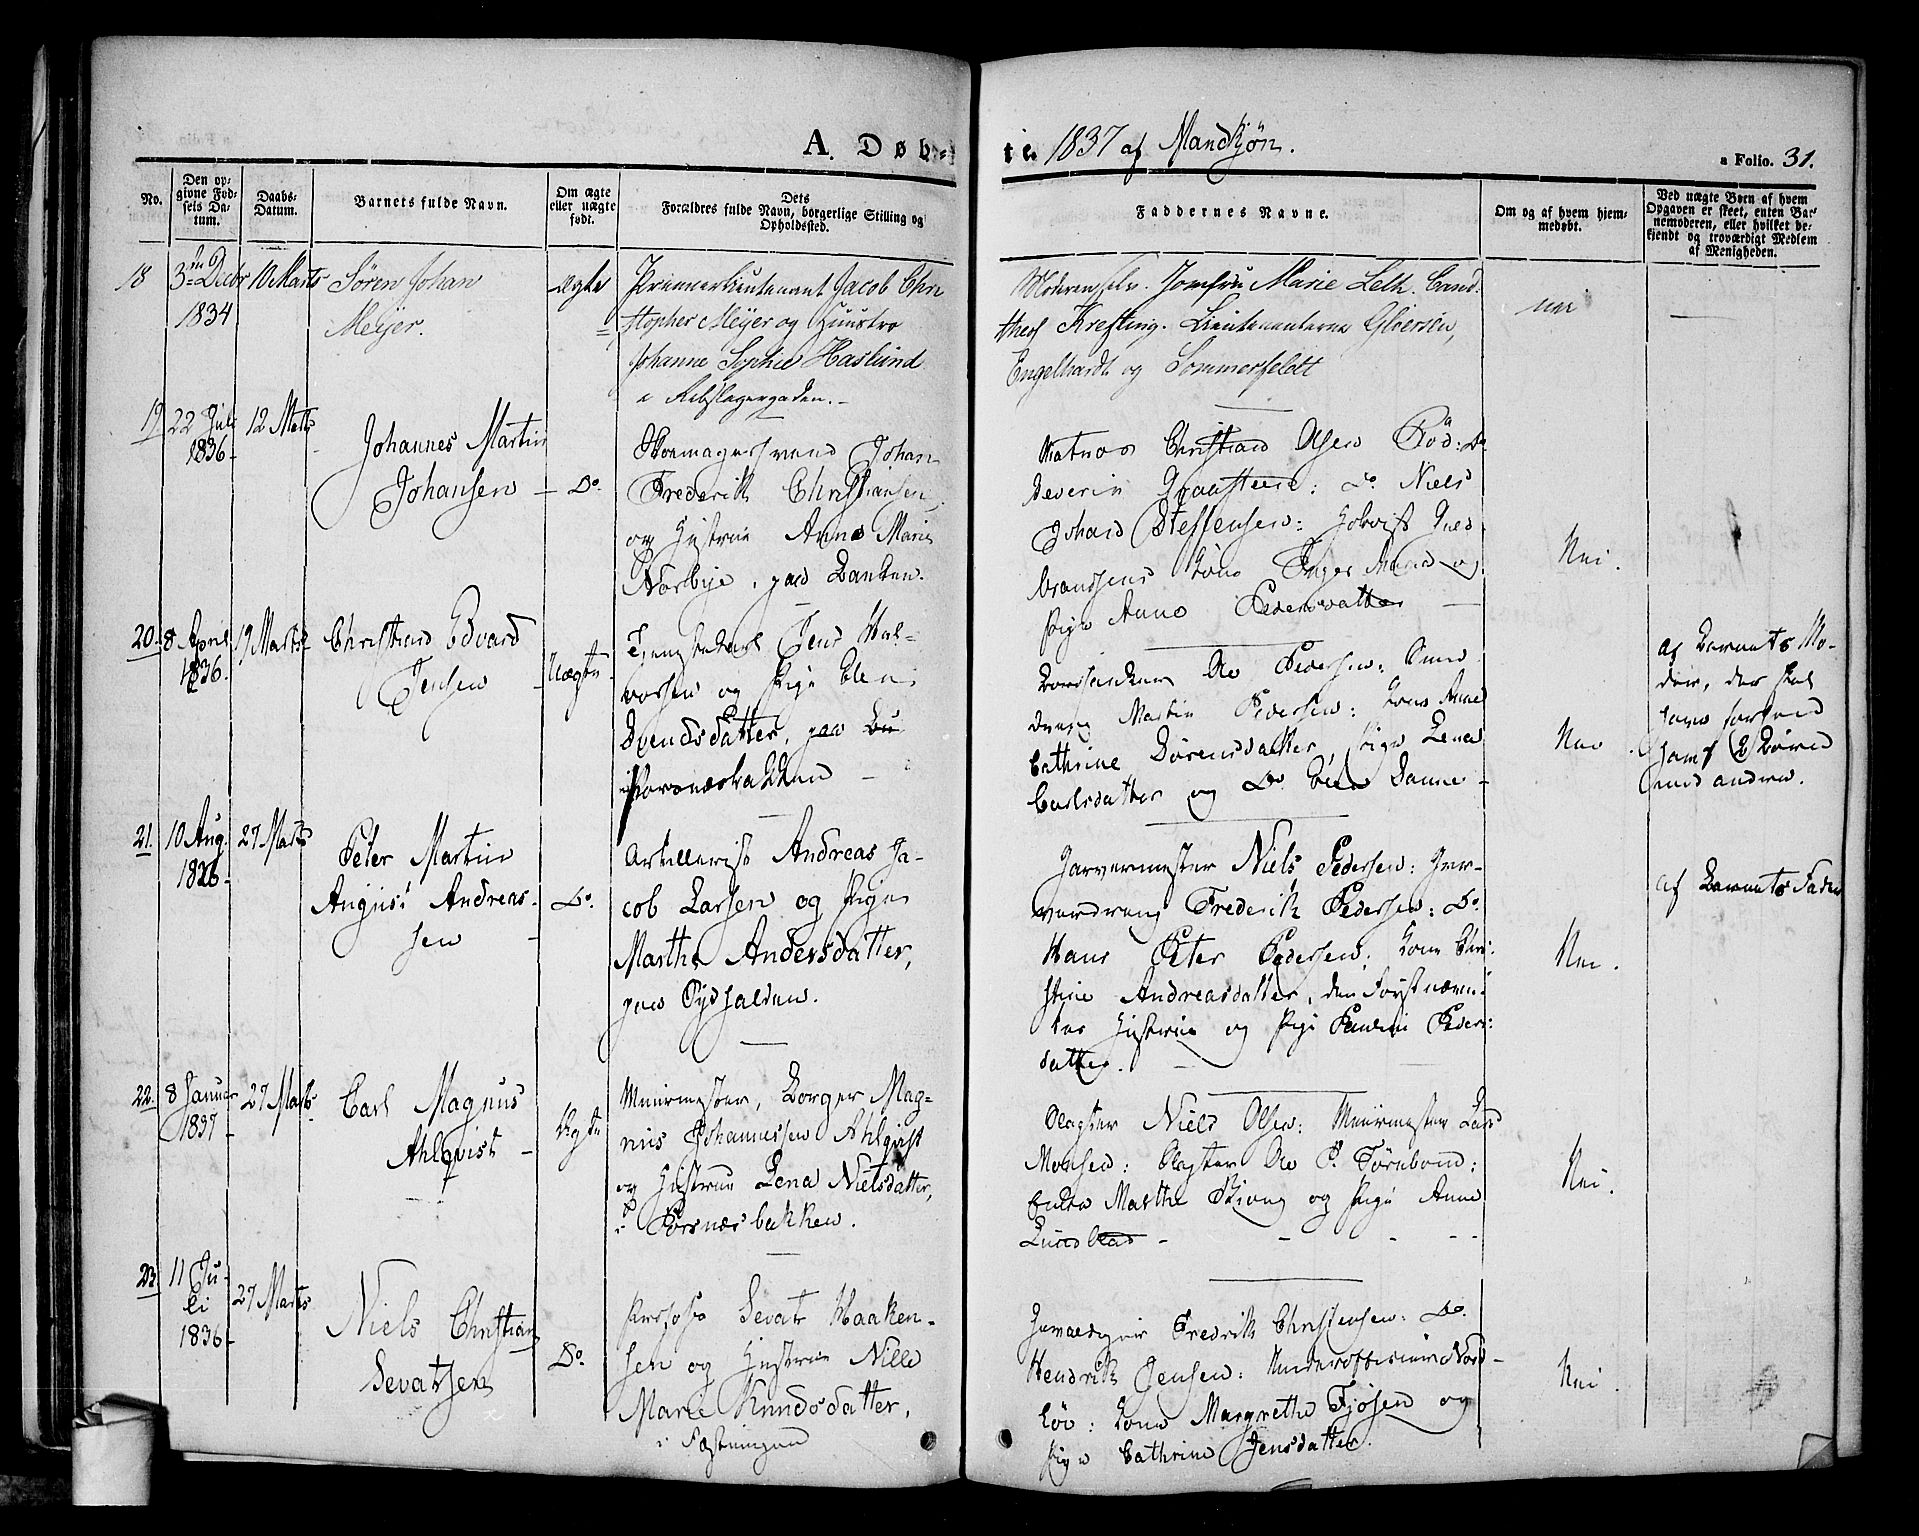 A. Døb-
te. 1837 af Mandkjøn.
a Folio. 31.
No.
Den op-
givne Fød-
sels Da-
tum.
Daabs-
Datum.
Barnets fulde Navn.
Om ægte
eller uægte
født.
Dets
Forældres fulde Navn, borgerlige Stilling og
Opholdssted.
Faddernes Navne.
Om og af hvem hjem-
medøbt.
Ved uægte Børn af hvem
Opgaven er skeet, enten Bar-
nemoderen, eller hvilket be-
kjendt og troværdigt Medlem
af Menigheden.
18
3 Decbr
1834
10 Marts
Søren Johan
Meijer.
Ægte
Premierlieutenant Jacob Chri
stopher Meijer og Huustro
Johanne Sophie Haslund
i Rebslagergaden.
Moderen selv. Jomfru Marie Leth. Cand.
theol Krefting. Lieutenanterne Gløersen,
Engelhardt og Sommerfeldt
nei
19
22 Juli
1836
12 Marts
Johannes Martin
Johansen
Do.
Skomagersvend Johan
Frederik Christiansen,
og Hustrue Anne Marie
Norbye, paa Banken.
Matros Christian Olsen Röd: Do
Severin Graasteen: Do Niels
Johan Steffensen:
Inger
og
Pige Anne Pedersdatter
Nei.
20.
8 April
1836.
19 Marts
Christian Edvard
Jensen
Uægte
Tjenestekarl Jens Hal-
vorsen og Pige Eleni
Svendsdatter, paa
Ole Pedersen:
dreng Martin Pedersen: Kone Anne
Cathrine Sørensdatter, Pige Lena
Carlsdatter og Do.
Nei
af Barnets Mo-
der, der skal
have forhen
havt 2 Børn
med andre.
21.
10 Aug.
1826
27 Marts
Peter Martin
August Andreas-
sen
Do.
Artillerist Andreas Ja-
cob Larsen og Pige
Marthe Andersdatter,
paa Sydhalden.
Garvermester Niels Pedersen: Gar-
verdreng Frederik Pedersen: Do.
Hans Peter Pedersen: Kone Chri-
stine Andreasdatter, den Førstnævn-
tes Hustrue og Pige Pauline Peders-
datter.
Nei.
af Barnets Fader
22.
8 Januar
1837
27 Marts
Carl Magnus
Ahlqvist
Ægte
Muurmester, Borger Mag-
nus Johannessen Ahlqvist
og Hustrue Lena Nielsdatter,
i Torsnæsbakken.
Slagter Niels Olsen: Muurmester Lars
Monsen: Slagter Ole P. Törnbom:
Enke Marthe og Pige Anne
Lundblad
Nei.
23
11 Ju-
li
1836
27 Marts
Niels Christian
Sevatsen
Do.
Sevat Haaken-
sen og Hustrue Nille
Marie Knudsdatter,
i Fæstningen
Fredrik Christensen: Do.
Hendrik Jensen: Underofficier
Kone Margrethe Fjøsen og
Pige Cathrine Jensdatter.
Nei.